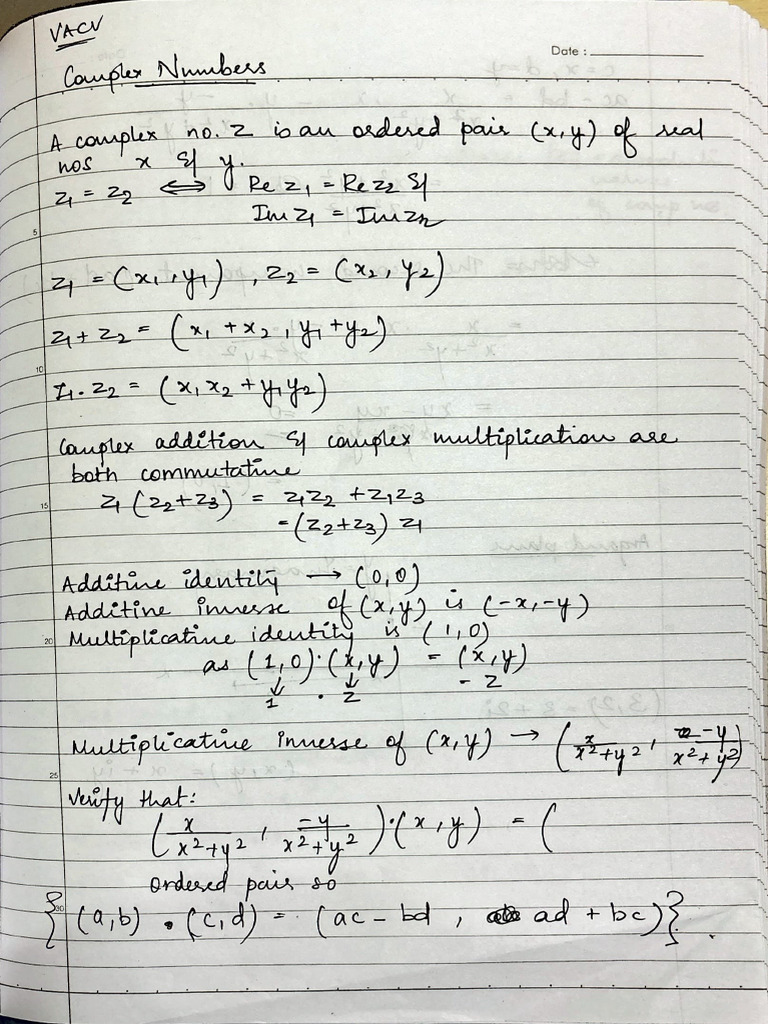 VACV
Date :
Complex Numbers
A complex no. z is an ordered pair (x,y) of real
nos x & y.
z₁ = z₂ ⟺ Re z₁ = Re z₂ &
Im z₁ = Im z₂
5
z₁ = (x₁, y₁), z₂ = (x₂, y₂)
z₁ + z₂ = (x₁ + x₂, y₁ + y₂)
10
z₁ . z₂ = (x₁x₂ + y₁y₂)
Complex addition & complex multiplication are
both commutative
15
z₁ (z₂ + z₃) = z₁z₂ + z₁z₃
= (z₂ + z₃) z₁
Additive identity → (0,0)
Additive inverse of (x,y) is (-x,-y)
20
Multiplicative identity is (1,0)
as (1,0)·(x,y) = (x,y)
↓ ↓
1 . z = z
Multiplicative inverse of (x,y) → (x/(x²+y²), -y/(x²+y²))
25
Verify that:
(x/(x²+y²), -y/(x²+y²))·(x,y) = (
ordered pair so
30
{(a,b) . (c,d) = (ac - bd, ad + bc)}.